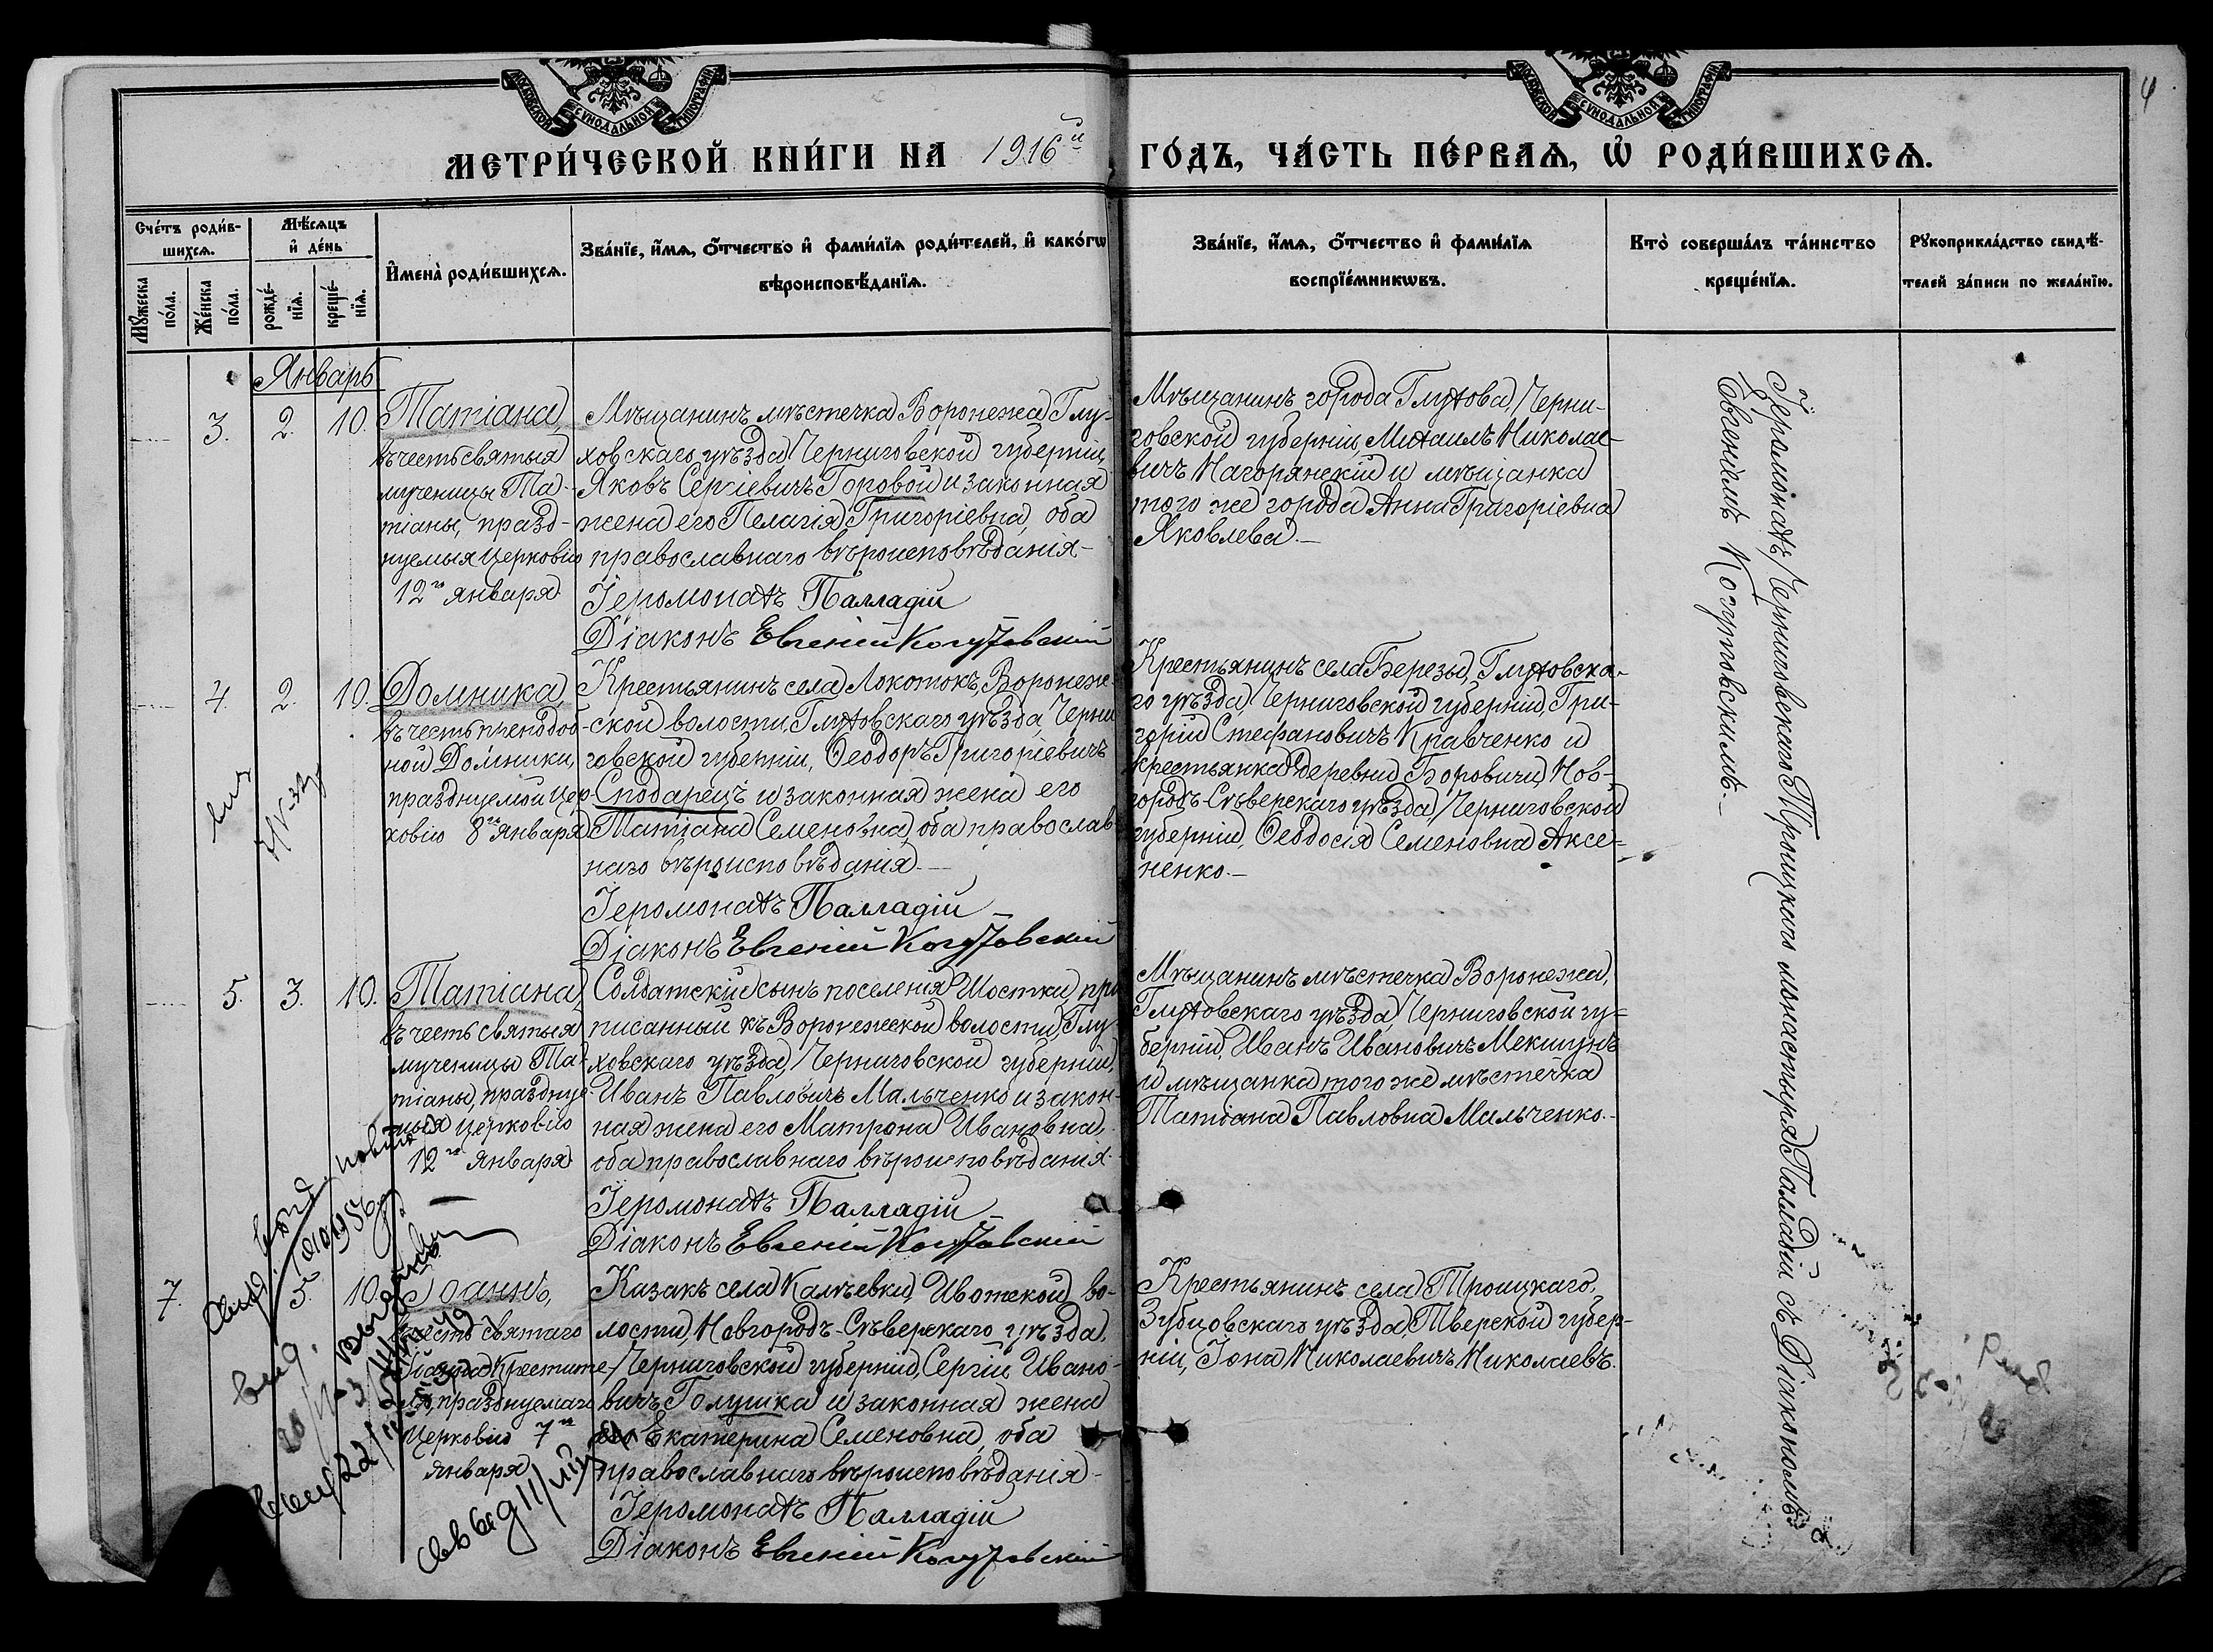 МОСКОВСКОЙ СѴНОДАЛЬНОЙ ТИПОГРАФІИ
МОСКОВСКОЙ СѴНОДАЛЬНОЙ ТИПОГРАФІИ
4
МЕТРИ́ЧЕСКОЙ КНИ́ГИ НА 1916й ГО́ДЪ, ЧА́СТЬ ПЕ́РВАѦ, Ѡ҆ РОДИ́ВШИХСѦ.
Сче́тъ роди́в-
шихсѧ.
Мꙋ́жеска по́ла.
Же́нска по́ла.
Мѣ́сѧцъ
и҆ де́нь
рожде́-
нїѧ.
креще́-
нїѧ.
И҆мена̀ роди́вшихсѧ.
Зва́нїе, и҆́мѧ, ѻ҆́тчество и҆ фами́лїѧ роди́телей, и҆ како́гѡ
вѣроисповѣ́данїѧ.
Зва́нїе, и҆́мѧ, ѻ҆́тчество и҆ фами́лїѧ
воспрїе́мникѡвъ.
Кто̀ соверша́лъ та́инство
креще́нїѧ.
Рꙋкоприкла́дство свидѣ́-
телей за́писи по жела́нїю.
Январь
3. 2. 10.
Татіана,
въ честь святыя
мученицы Та-
тіаны, празд-
нуемыя Церковію
12го января
Мѣщанинъ мѣстечка Воронежа, Глу-
ховскаго уѣзда, Черниговской губерніи,
Яковъ Сергіевичъ Горовой и законная
жена его Пелагія Григоріевна, оба
православнаго вѣроисповѣданія-
Іеромонахъ Палладій
Діаконъ Евгеній Косуховскій
Мѣщанинъ города Глухова, Черни-
говской губерніи, Михаилъ Николае-
вичъ Нагорянскій и мѣщанка
того же города Анна Григоріевна
Яковлева.-
4. 2. 10.
Домника,
въ честь преподоб-
ной Домники,
празднуемой Цер-
ковію 8го января
Крестьянинъ села Локотокъ, Воронеж-
ской волости, Глуховскаго уѣзда, Черни
говской губерніи, Ѳеодоръ Григоріевичъ
Сподарецъ и законная жена его
Татіана Семеновна, оба православ
наго вѣроисповѣданія.-
Іеромонахъ Палладій
Діаконъ Евгеній Косуховскій
Крестьянинъ села Березы, Глуховска-
го уѣзда, Черниговской губерніи, Гри-
горій Стефановичъ Кравченко и
крестьянка деревни Боровичи, Нов-
городъ-Сѣверскаго уѣзда, Черниговской
губерніи, Ѳеодосія Семеновна Аксе-
ненко.-
5. 3. 10.
Татіана,
въ честь святыя
мученицы Та-
тіаны, празднуе-
мыя Церковію
12го января
Солдатскій сынъ поселенія Шостки, при
писанный къ Воронежской волости, Глу-
ховскаго уѣзда, Черниговской губерніи,
Иванъ Павловичъ Мальченко и закон-
ная жена его Матрона Ивановна,
оба православнаго вѣроисповѣданія.
Іеромонахъ Палладій
Діаконъ Евгеній Косуховскій
Мѣщанинъ мѣстечка Воронежа,
Глуховскаго уѣзда, Черниговской гу-
берніи, Иванъ Ивановичъ Мекшунъ
и мѣщанка того же мѣстечка
Татіана Павловна Мальченко.-
7. 5. 10.
Іоаннъ,
въ честь святаго
Іоанна Крестите-
ля, празднуемаго
Церковію 7го
января
Казакъ села Калѣевки, Ивотской во-
лости, Новгородъ-Сѣверскаго уѣзда,
Черниговской губерніи, Сергій Ивано-
вичъ Голушка и законная жена
его Екатерина Семеновна, оба
православнаго вѣроисповѣданія-
Іеромонахъ Палладій
Діаконъ Евгеній Косуховскій
Крестьянинъ села Троицкаго,
Зубцовскаго уѣзда, Тверской губер-
ніи, Іона Николаевичъ Николаевъ.
Іеромонахъ Черниговскаго Троицкаго монастыря Палладій съ Діакономъ
Евгеніемъ Косуховскимъ.-